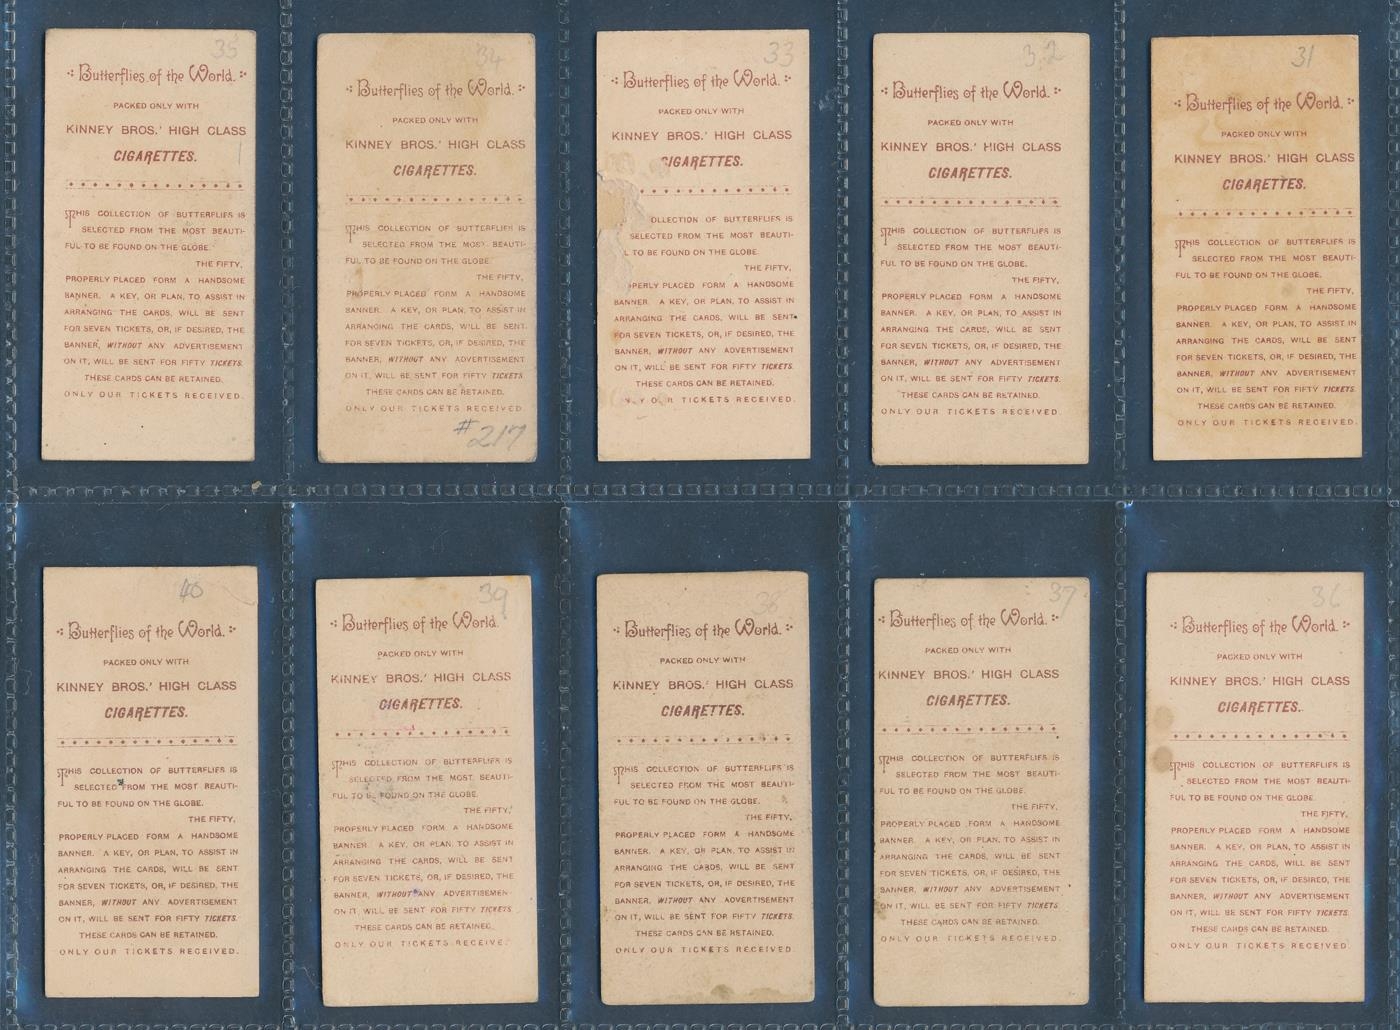 35
Butterflies of the World.
PACKED ONLY WITH
KINNEY BROS.' HIGH CLASS
CIGARETTES.
THIS COLLECTION OF BUTTERFLIES IS
SELECTED FROM THE MOST BEAUTI-
FUL TO BE FOUND ON THE GLOBE.
THE FIFTY,
PROPERLY PLACED FORM A HANDSOME
BANNER. A KEY, OR PLAN, TO ASSIST IN
ARRANGING THE CARDS, WILL BE SENT
FOR SEVEN TICKETS, OR, IF DESIRED, THE
BANNER, WITHOUT ANY ADVERTISEMENT
ON IT, WILL BE SENT FOR FIFTY TICKETS.
THESE CARDS CAN BE RETAINED.
ONLY OUR TICKETS RECEIVED.
34
Butterflies of the World.
PACKED ONLY WITH
KINNEY BROS.' HIGH CLASS
CIGARETTES.
THIS COLLECTION OF BUTTERFLIES IS
SELECTED FROM THE MOST BEAUTI-
FUL TO BE FOUND ON THE GLOBE.
THE FIFTY,
PROPERLY PLACED FORM A HANDSOME
BANNER. A KEY, OR PLAN, TO ASSIST IN
ARRANGING THE CARDS, WILL BE SENT
FOR SEVEN TICKETS, OR, IF DESIRED, THE
BANNER, WITHOUT ANY ADVERTISEMENT
ON IT, WILL BE SENT FOR FIFTY TICKETS.
THESE CARDS CAN BE RETAINED.
ONLY OUR TICKETS RECEIVED.
#217
33
Butterflies of the World.
PACKED ONLY WITH
KINNEY BROS.' HIGH CLASS
CIGARETTES.
OLLECTION OF BUTTERFLIES IS
SELECTED FROM THE MOST BEAUTI-
L TO BE FOUND ON THE GLOBE.
THE FIFTY,
PERLY PLACED FORM A HANDSOME
BANNER. A KEY, OR PLAN, TO ASSIST IN
ARRANGING THE CARDS, WILL BE SENT
FOR SEVEN TICKETS, OR, IF DESIRED, THE
BANNER, WITHOUT ANY ADVERTISEMENT
ON IT, WILL BE SENT FOR FIFTY TICKETS.
THESE CARDS CAN BE RETAINED.
OUR TICKETS RECEIVED.
32
Butterflies of the World.
PACKED ONLY WITH
KINNEY BROS.' HIGH CLASS
CIGARETTES.
THIS COLLECTION OF BUTTERFLIES IS
SELECTED FROM THE MOST BEAUTI-
FUL TO BE FOUND ON THE GLOBE.
THE FIFTY,
PROPERLY PLACED FORM A HANDSOME
BANNER. A KEY, OR PLAN, TO ASSIST IN
ARRANGING THE CARDS, WILL BE SENT
FOR SEVEN TICKETS, OR, IF DESIRED, THE
BANNER, WITHOUT ANY ADVERTISEMENT
ON IT, WILL BE SENT FOR FIFTY TICKETS.
THESE CARDS CAN BE RETAINED.
ONLY OUR TICKETS RECEIVED.
31
Butterflies of the World.
PACKED ONLY WITH
KINNEY BROS.' HIGH CLASS
CIGARETTES.
THIS COLLECTION OF BUTTERFLIES IS
SELECTED FROM THE MOST BEAUTI-
FUL TO BE FOUND ON THE GLOBE.
THE FIFTY,
PROPERLY PLACED FORM A HANDSOME
BANNER. A KEY, OR PLAN, TO ASSIST IN
ARRANGING THE CARDS, WILL BE SENT
FOR SEVEN TICKETS, OR, IF DESIRED, THE
BANNER, WITHOUT ANY ADVERTISEMENT
ON IT, WILL BE SENT FOR FIFTY TICKETS.
THESE CARDS CAN BE RETAINED.
ONLY OUR TICKETS RECEIVED.
40
Butterflies of the World.
PACKED ONLY WITH
KINNEY BROS.' HIGH CLASS
CIGARETTES.
THIS COLLECTION OF BUTTERFLIES IS
SELECTED FROM THE MOST BEAUTI-
FUL TO BE FOUND ON THE GLOBE.
THE FIFTY,
PROPERLY PLACED FORM A HANDSOME
BANNER. A KEY, OR PLAN, TO ASSIST IN
ARRANGING THE CARDS, WILL BE SENT
FOR SEVEN TICKETS, OR, IF DESIRED, THE
BANNER, WITHOUT ANY ADVERTISEMENT
ON IT, WILL BE SENT FOR FIFTY TICKETS.
THESE CARDS CAN BE RETAINED.
ONLY OUR TICKETS RECEIVED.
39
Butterflies of the World.
PACKED ONLY WITH
KINNEY BROS.' HIGH CLASS
CIGARETTES.
THIS COLLECTION OF BUTTERFLIES IS
SELECTED FROM THE MOST BEAUTI-
FUL TO BE FOUND ON THE GLOBE.
THE FIFTY,
PROPERLY PLACED FORM A HANDSOME
BANNER. A KEY, OR PLAN, TO ASSIST IN
ARRANGING THE CARDS, WILL BE SENT
FOR SEVEN TICKETS, OR, IF DESIRED, THE
BANNER, WITHOUT ANY ADVERTISEMEN
ON IT, WILL BE SENT FOR FIFTY TICKETS
THESE CARDS CAN BE RETAINED.
ONLY OUR TICKETS RECEIVE
38
Butterflies of the World.
PACKED ONLY WITH
KINNEY BROS.' HIGH CLASS
CIGARETTES.
THIS COLLECTION OF BUTTERFLIES IS
SELECTED FROM THE MOST BEAUTI-
FUL TO BE FOUND ON THE GLOBE.
THE FIFTY,
PROPERLY PLACED FORM A HANDSOME
BANNER. A KEY, OR PLAN, TO ASSIST IN
ARRANGING THE CARDS, WILL BE SENT
FOR SEVEN TICKETS, OR, IF DESIRED, THE
BANNER, WITHOUT ANY ADVERTISEMENT
ON IT, WILL BE SENT FOR FIFTY TICKETS.
THESE CARDS CAN BE RETAINED.
ONLY OUR TICKETS RECEIVED.
37
Butterflies of the World.
PACKED ONLY WITH
KINNEY BROS.' HIGH CLASS
CIGARETTES.
THIS COLLECTION OF BUTTERFLIES IS
SELECTED FROM THE MOST BEAUTI-
FUL TO BE FOUND ON THE GLOBE.
THE FIFTY,
PROPERLY PLACED FORM A HANDSOME
BANNER. A KEY, OR PLAN, TO ASSIST IN
ARRANGING THE CARDS, WILL BE SENT
FOR SEVEN TICKETS, OR, IF DESIRED, THE
BANNER, WITHOUT ANY ADVERTISEMENT
ON IT, WILL BE SENT FOR FIFTY TICKETS.
THESE CARDS CAN BE RETAINED.
ONLY OUR TICKETS RECEIVED.
36
Butterflies of the World.
PACKED ONLY WITH
KINNEY BROS.' HIGH CLASS
CIGARETTES.
THIS COLLECTION OF BUTTERFLIES IS
SELECTED FROM THE MOST BEAUTI-
FUL TO BE FOUND ON THE GLOBE.
THE FIFTY,
PROPERLY PLACED FORM A HANDSOME
BANNER. A KEY, OR PLAN, TO ASSIST IN
ARRANGING THE CARDS, WILL BE SENT
FOR SEVEN TICKETS, OR, IF DESIRED, THE
BANNER, WITHOUT ANY ADVERTISEMENT
ON IT, WILL BE SENT FOR FIFTY TICKETS.
THESE CARDS CAN BE RETAINED.
ONLY OUR TICKETS RECEIVED.